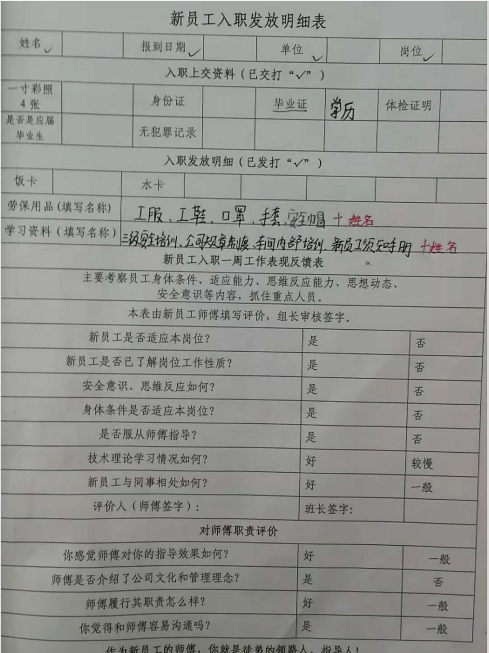 新员工入职发放明细表
姓名✓ 报到日期✓ 单位✓ 岗位✓
入职上交资料(已交打“✓”)
一寸彩照4张 身份证 毕业证 学历 体检证明
是否是应届毕业生 无犯罪记录
入职发放明细(已发打“✓”)
饭卡 水卡
劳保用品(填写名称) 工服、工鞋、口罩、手套、安全帽 十姓名
学习资料(填写名称) 三级安全培训、公司规章制度、车间内部培训、新员工须知手册 十姓名
新员工入职一周工作表现反馈表
主要考察员工身体条件、适应能力、思维反应能力、思想动态、
安全意识等内容,抓住重点人员。
本表由新员工师傅填写评价,组长审核签字。
新员工是否适应本岗位? 是 否
新员工是否已了解岗位工作性质? 是 否
安全意识、思维反应如何? 是 否
身体条件是否适应本岗位? 是 否
是否服从师傅指导? 是 否
技术理论学习情况如何? 好 较慢
新员工与同事相处如何? 好 一般
评价人(师傅签字): 班长签字:
对师傅职责评价
你感觉师傅对你的指导效果如何? 好 一般
师傅是否介绍了公司文化和管理理念? 是 否
师傅履行其职责怎么样? 好 一般
你觉得和师傅容易沟通吗? 是 一般
作为新员工的师傅,你就是徒弟的领路人、指导人!